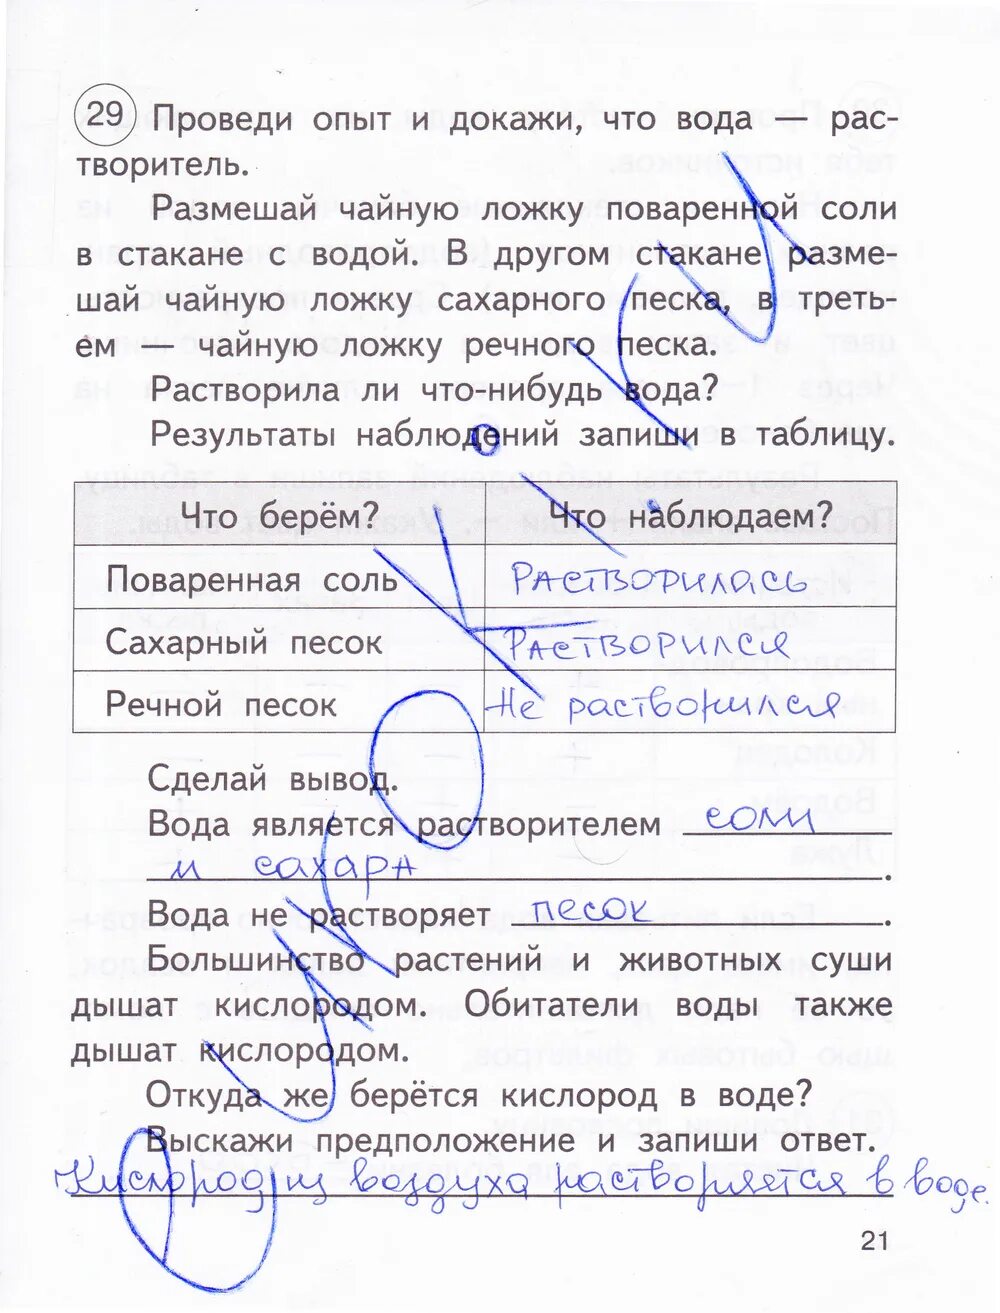 29 Проведи опыт и докажи, что вода – рас-
творитель.
Размешай чайную ложку поваренной соли
в стакане с водой. В другом стакане разме-
шай чайную ложку сахарного песка, в треть-
ем – чайную ложку речного песка.
Растворила ли что-нибудь вода?
Результаты наблюдений запиши в таблицу.
Что берём? Что наблюдаем?
Поваренная соль Растворилась
Сахарный песок Растворился
Речной песок Не растворился
Сделай вывод.
Вода является растворителем соли
и сахара.
Вода не растворяет песок.
Большинство растений и животных суши
дышат кислородом. Обитатели воды также
дышат кислородом.
Откуда же берётся кислород в воде?
Выскажи предположение и запиши ответ.
Кислород из воздуха растворяется в воде.
21